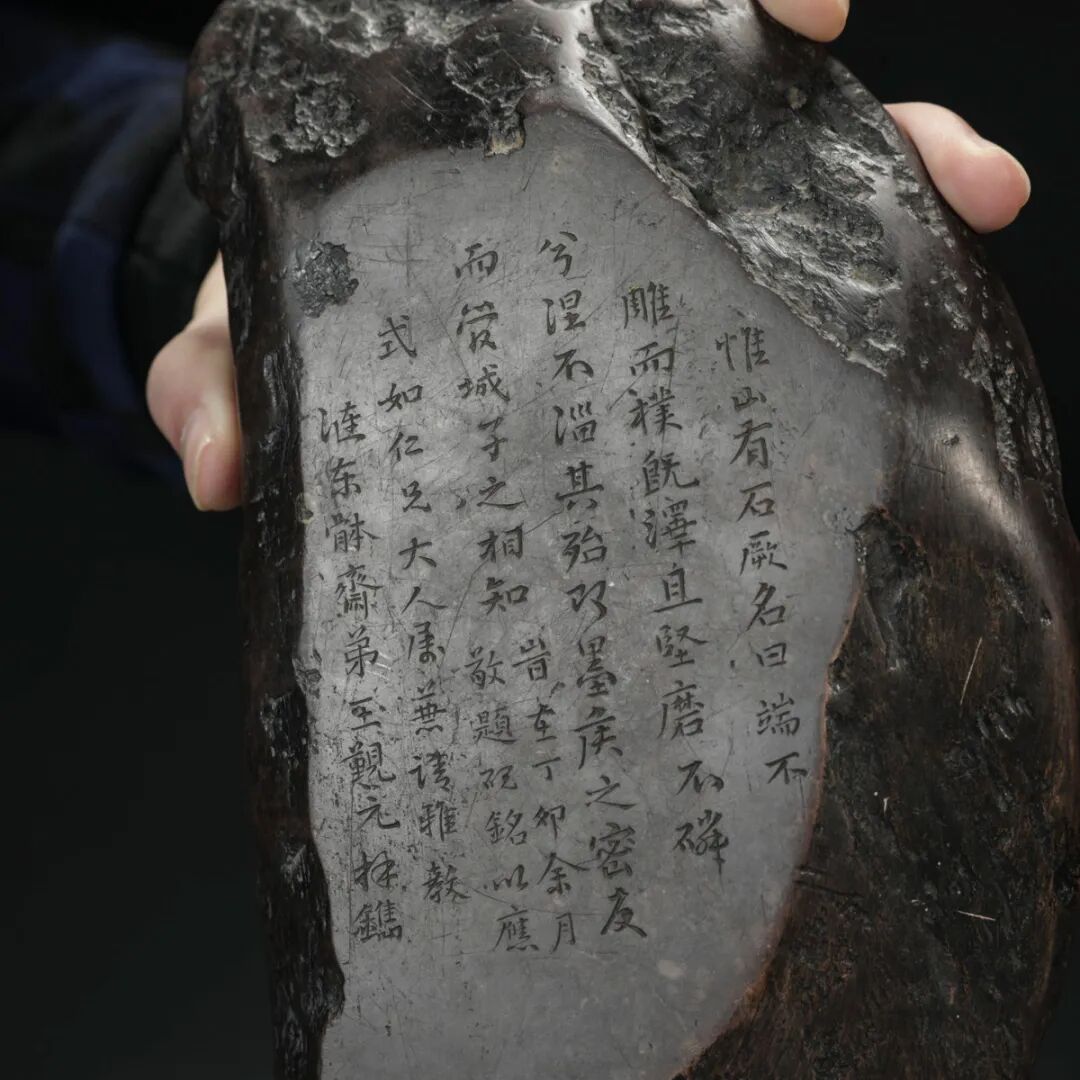 惟山有石厥名曰端不
雕而樸既澤且堅磨不磷
兮涅不淄其殆即墨侯之密友
而管城子之相知
旹在丁卯余月
敬題硯銘以應
式如仁兄大人属兼請雅教
东齋弟王覲元拜鐫